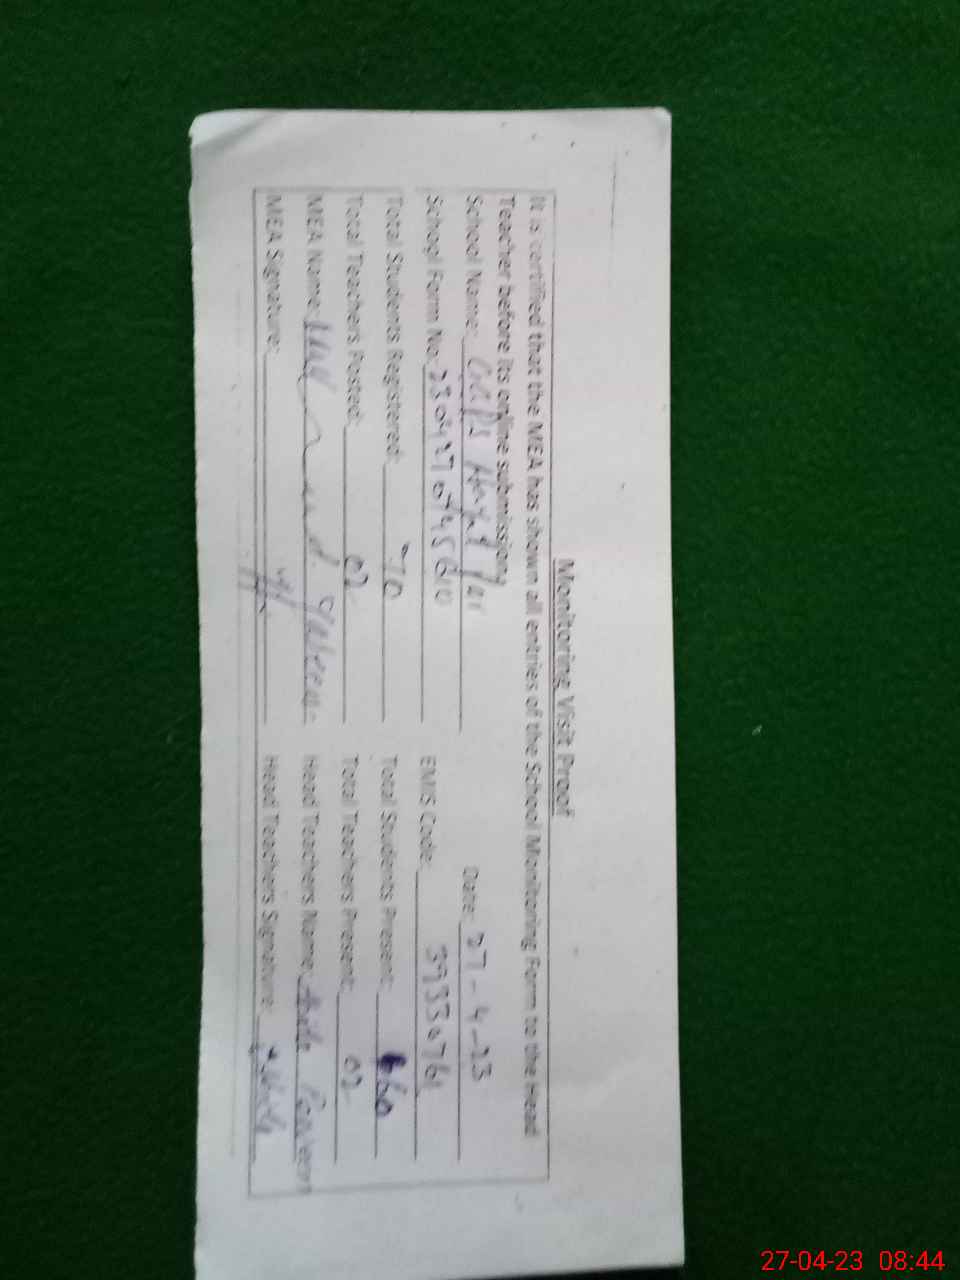 Monitoring Visit Proof
It is certified that the MEA has shown all entries of the School Monitoring Form to the Head
Teacher before its online submission.
School Name: Date: 27-4-23
School Form No. EMIS Code: 39330761
Total Students Registered: 70 Total Students Present: 60
Total Teachers Posted: 02 Total Teachers Present: 02
MEA Name: Head Teachers Name:
MEA Signature: Head Teachers Signature:
27-04-23 08:44